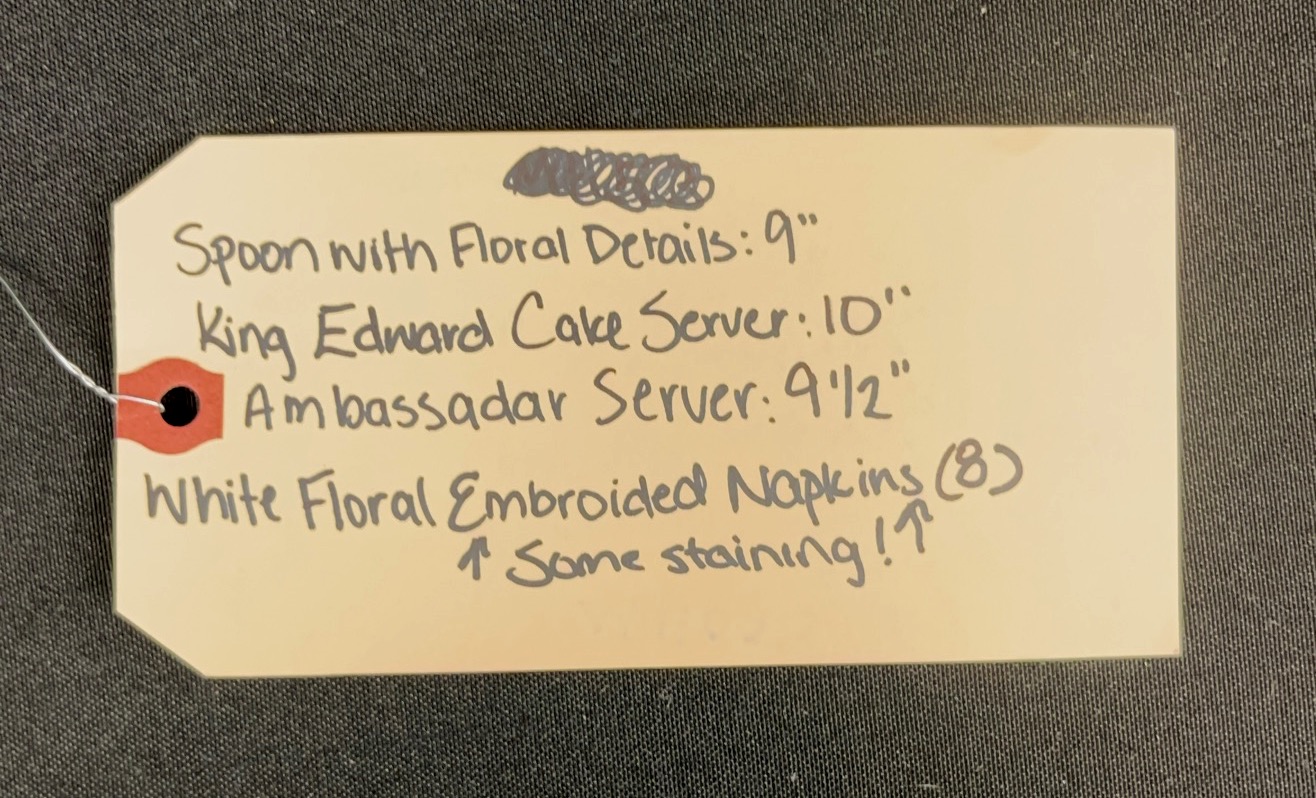 Spoon with Floral Details: 9"
King Edward Cake Server: 10"
Ambassadar Server: 9 1/2"
White Floral Embroided Napkins (8)
↑ Some staining! ↑